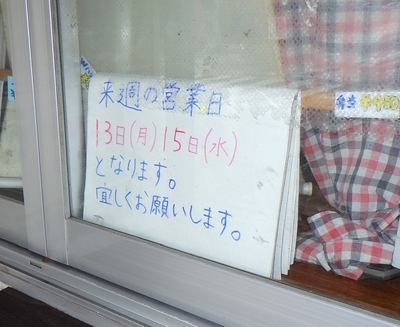 来週の営業日
13日(月)15日(水)
となります。
宜しくお願いします。